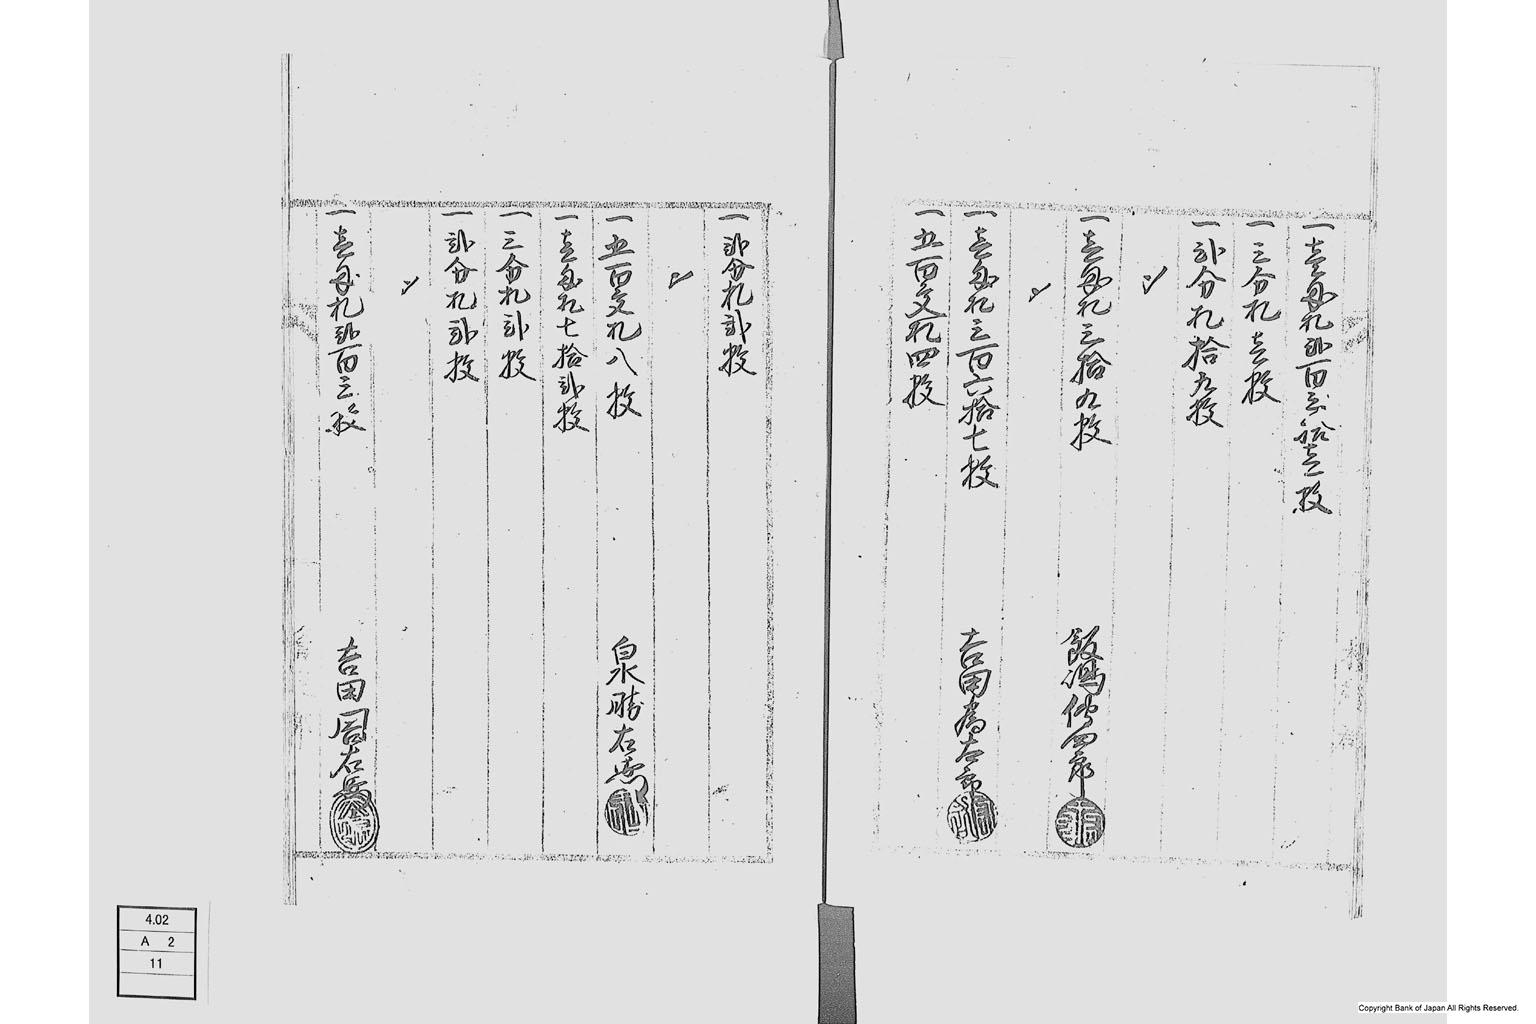 一壱匁札弐百三拾壱枚
一三分札壱枚
一弐分札拾九枚
一壱匁札三拾九枚 飯嶋傳四郎
一壱匁札三百六拾七枚 吉田為太郎
一五百文札四枚
一弐分札弐枚
一五百文札八枚 泉勝右衛
一壱匁札七拾弐枚
一三分札弐枚
一弐分札弐枚
一壱匁札弐百三枚 吉田 右兵
4.02
A 2
11
Copyright Bank of Japan All Rights Reserved.